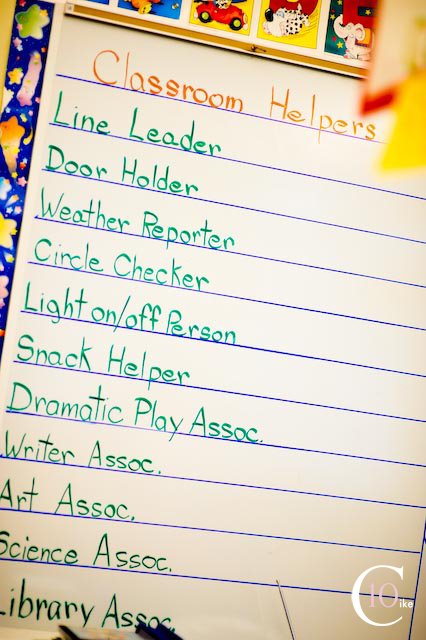 Classroom Helpers
Line Leader
Door Holder
Weather Reporter
Circle Checker
Light on/off Person
Snack Helper
Dramatic Play Assoc.
Writer Assoc.
Art Assoc.
Science Assoc.
Library Assoc.
C10ike